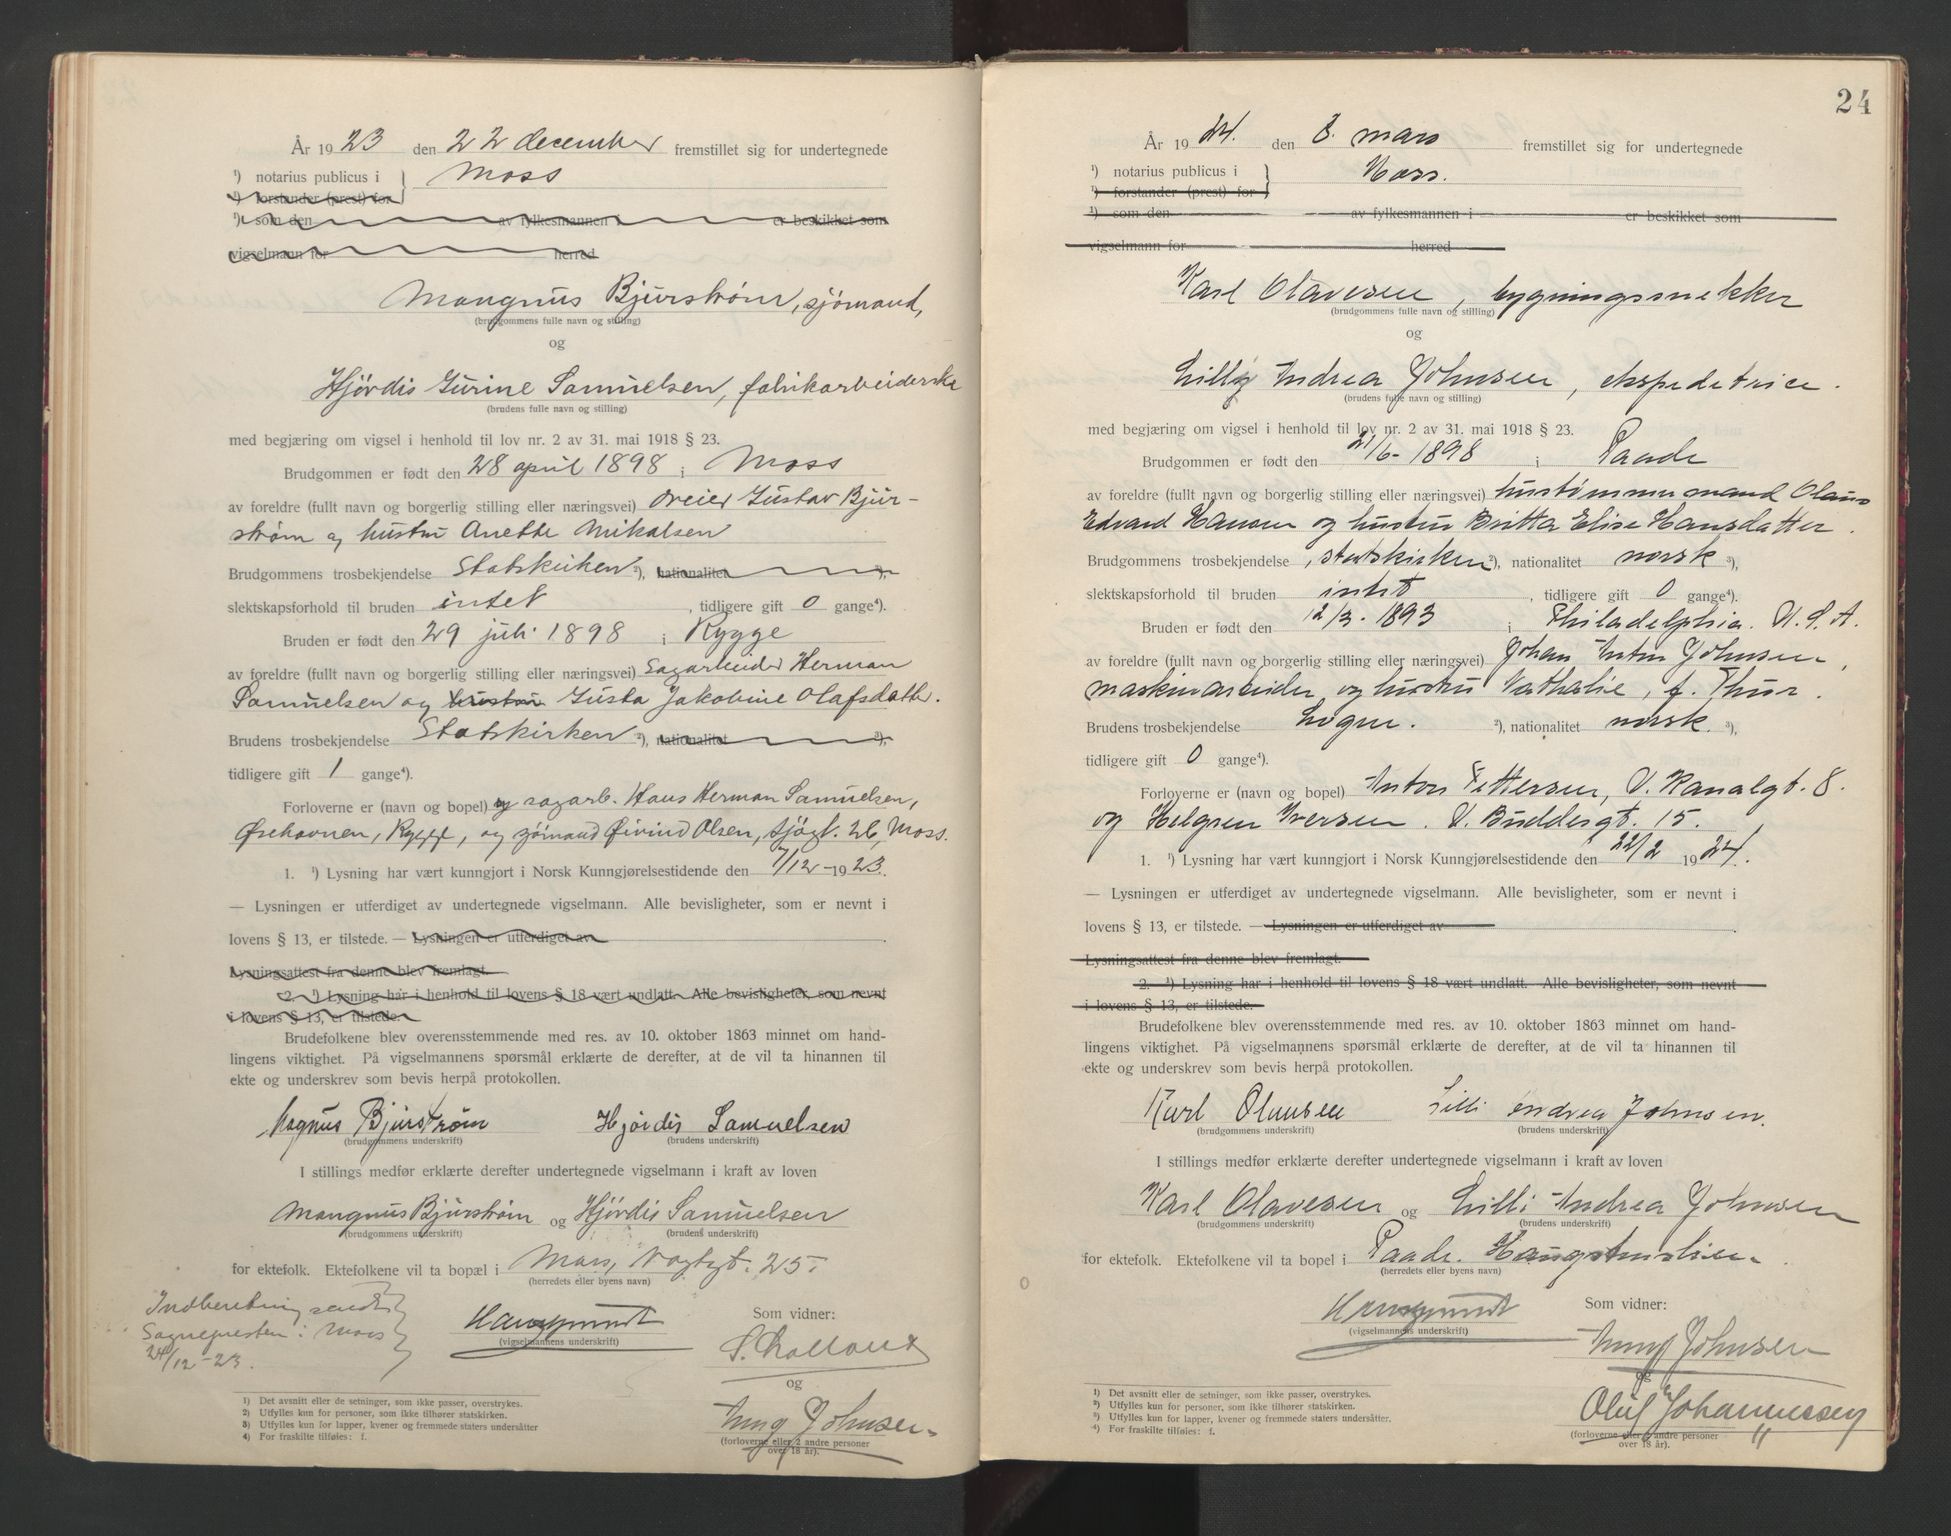 År 1923 den 22 december fremstillet sig for undertegnede
¹) notarius publicus i } Moss
¹) forstander (prest) for
¹) som den av fylkesmannen i er beskikket som
vigselmann for herred
Mangnus Bjurstrøm, sjømand,
(brudgommens fulle navn og stilling)
og
Hjørdis Gurine Samuelsen, fabrikarbeiderske
(brudens fulle navn og stilling)
med begjæring om vigsel i henhold til lov nr. 2 av 31. mai 1918 § 23.
Brudgommen er født den 28 april 1898 i Moss
av foreldre (fullt navn og borgerlig stilling eller næringsvei) dreier Gustav Bjur-
strøm og hustru Anette Mikalsen
Brudgommens trosbekjendelse Statskirken ²), nationalitet ³),
slektskapsforhold til bruden intet, tidligere gift 0 gange⁴).
Bruden er født den 29 juli 1898 i Rygge
av foreldre (fullt navn og borgerlig stilling eller næringsvei) sagarbeider Herman
Samuelsen og hustru Gusta Jakobine Olafsdatter.
Brudens trosbekjendelse Statskirken ²), nationalitet ³),
tidligere gift 1 gange⁴).
Forloverne er (navn og bopel) sagarb. Hans Herman Samuelsen,
Ørehavnen, Rygge, og sjømand Øivind Olsen, Sjøgt. 26, Moss.
1. ¹) Lysning har vært kunngjort i Norsk Kunngjørelsestidende den 7/12-1923.
— Lysningen er utferdiget av undertegnede vigselmann. Alle bevisligheter, som er nevnt i
lovens § 13, er tilstede. — Lysningen er utferdiget av
Lysningsattest fra denne blev fremlagt.
2. ¹) Lysning har i henhold til lovens § 18 vært undlatt. Alle bevisligheter, som nevnt
i lovens § 13, er tilstede.
Brudefolkene blev overensstemmende med res. av 10. oktober 1863 minnet om hand-
lingens viktighet. På vigselmannens spørsmål erklærte de derefter, at de vil ta hinannen til
ekte og underskrev som bevis herpå protokollen.
Magnus Bjurstrøm Hjørdis Samuelsen
(brudgommens underskrift) (brudens underskrift)
I stillings medfør erklærte derefter undertegnede vigselmann i kraft av loven
Mangnus Bjurstrøm og Hjørdis Samuelsen
(brudgommens underskrift) (brudens underskrift)
for ektefolk. Ektefolkene vil ta bopæl i Moss, Vogtgt. 25.
(herredets eller byens navn)
Indberetning sendt
Sognepresten i Moss
24/12-23.
Haugsmundt
(vigselmannens underskrift)
Som vidner:
og
Johnsen
(forloverne eller 2 andre personer
over 18 år).
1) Det avsnitt eller de setninger, som ikke passer, overstrykes.
2) Utfylles kun for personer, som ikke tilhører statskirken.
3) Utfylles kun for lapper, kvener og fremmede staters undersåtter
4) For fraskilte tilføies: f.
24
År 1924. den 8. mars fremstillet sig for undertegnede
¹) notarius publicus i } Moss.
¹) forstander (prest) for
¹) som den av fylkesmannen i er beskikket som
vigselmann for herred
Karl Olavesen, bygningssnekker
(brudgommens fulle navn og stilling)
og
Lilly Andrea Johnsen, ekspedetrice.
(brudens fulle navn og stilling)
med begjæring om vigsel i henhold til lov nr. 2 av 31. mai 1918 § 23.
Brudgommen er født den 21/6-1898 i Raade
av foreldre (fullt navn og borgerlig stilling eller næringsvei) hustømmermand Olaus
Edvard Hansen og hustru Britta Elise Hansdatter.
Brudgommens trosbekjendelse, statskirken ²), nationalitet norsk ³),
slektskapsforhold til bruden intet, tidligere gift 0 gange⁴).
Bruden er født den 12/3-1893 i Philadelphia. U.S.A.
av foreldre (fullt navn og borgerlig stilling eller næringsvei) Johan Anton Johnsen,
maskinarbeider og hustru Nathalie, f. Thur.
Brudens trosbekjendelse Logen. ²), nationalitet norsk. ³),
tidligere gift 0 gange⁴).
Forloverne er (navn og bopel) Anton Pettersen, V. Kanalgt. 8.
og Helgren Iversen. V. Buddesgt. 15.
1. ¹) Lysning har vært kunngjort i Norsk Kunngjørelsestidende den 22/2 1924.
— Lysningen er utferdiget av undertegnede vigselmann. Alle bevisligheter, som er nevnt i
lovens § 13, er tilstede. — Lysningen er utferdiget av
Lysningsattest fra denne blev fremlagt.
2. ¹) Lysning har i henhold til lovens § 18 vært undlatt. Alle bevisligheter, som nevnt
i lovens § 13, er tilstede.
Brudefolkene blev overensstemmende med res. av 10. oktober 1863 minnet om hand-
lingens viktighet. På vigselmannens spørsmål erklærte de derefter, at de vil ta hinannen til
ekte og underskrev som bevis herpå protokollen.
Karl Olausen Lilli Andrea Johnsen.
(brudgommens underskrift) (brudens underskrift)
I stillings medfør erklærte derefter undertegnede vigselmann i kraft av loven
Karl Olavesen og Lilli Andrea Johnsen
(brudgommens underskrift) (brudens underskrift)
for ektefolk. Ektefolkene vil ta bopel i Raade.
(herredets eller byens navn)
Haugsmundt
(vigselmannens underskrift)
Som vidner:
Johnsen
og
Oluf Johannessen
(forloverne eller 2 andre personer
over 18 år).
1) Det avsnitt eller de setninger, som ikke passer, overstrykes.
2) Utfylles kun for personer, som ikke tilhører statskirken.
3) Utfylles kun for lapper, kvener og fremmede staters undersåtter.
4) For fraskilte tilføies: f.